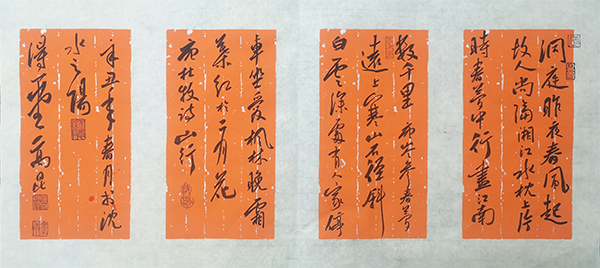 洞庭昨夜春風起
故人尚隔湘江水枕上片
時春夢中行盡江南
数千里 右岑參春夢
遠上寒山石徑斜
白云深處有人家停
車坐愛楓林晚霜
葉紅於二月花
右杜牧詩山行
辛丑年春月於沈
水之陽
得